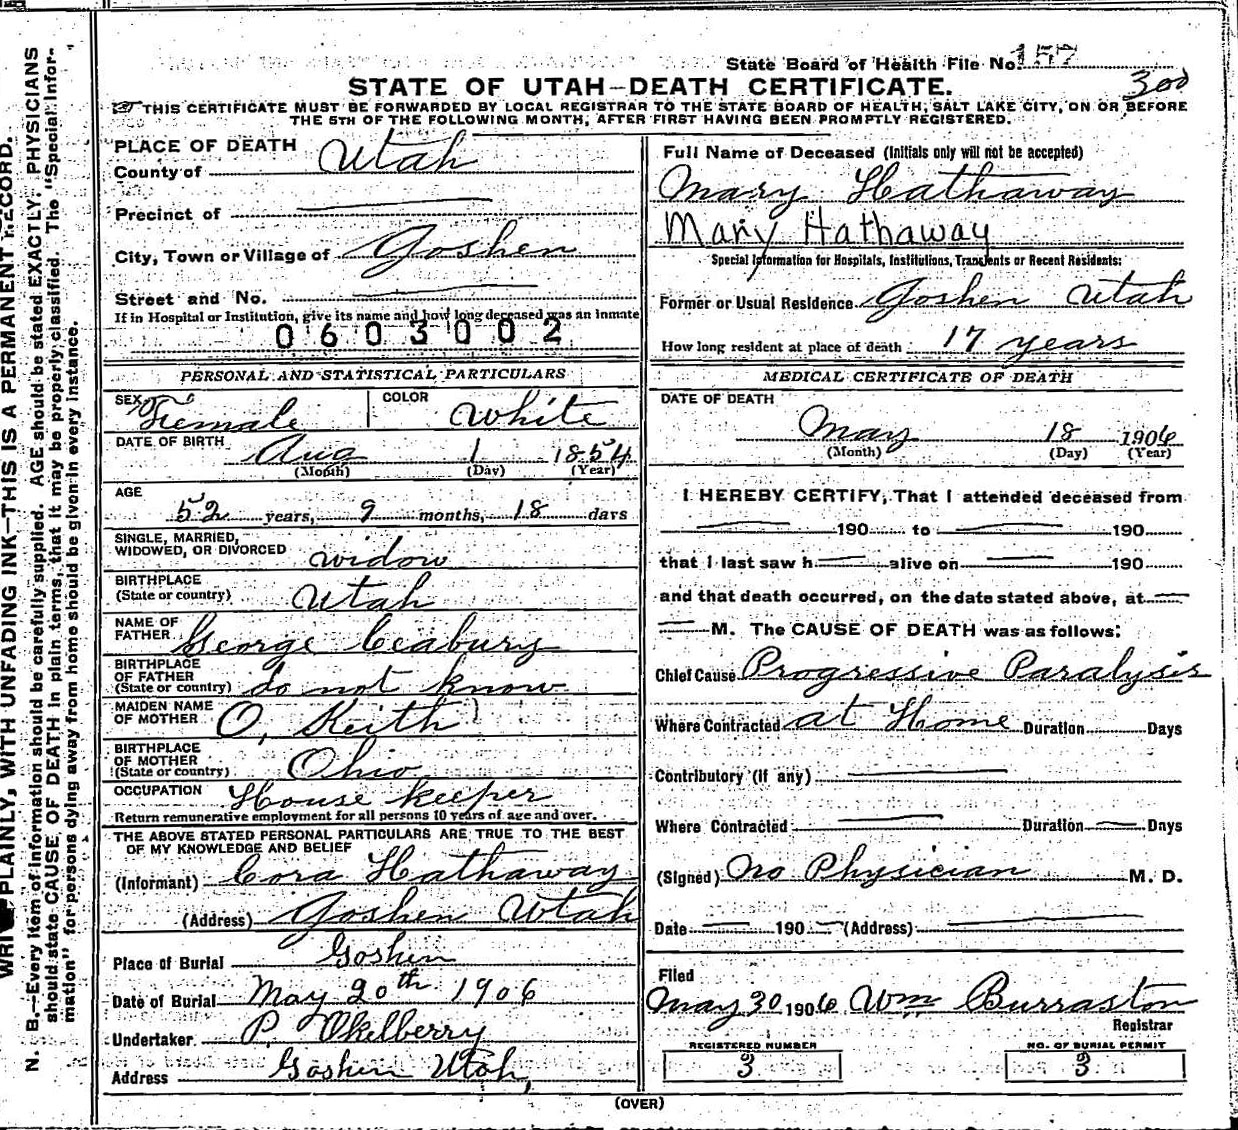 State Board of Health File No. 157
300
STATE OF UTAH—DEATH CERTIFICATE.
THIS CERTIFICATE MUST BE FORWARDED BY LOCAL REGISTRAR TO THE STATE BOARD OF HEALTH, SALT LAKE CITY, ON OR BEFORE
THE 5TH OF THE FOLLOWING MONTH, AFTER FIRST HAVING BEEN PROMPTLY REGISTERED.
PLACE OF DEATH
County of Utah
Precinct of
City, Town or Village of Goshen
Street and No.
If in Hospital or Institution, give its name and how long deceased was an inmate
0603002
PERSONAL AND STATISTICAL PARTICULARS
SEX Female COLOR White
DATE OF BIRTH Aug 1 1854
(Month) (Day) (Year)
AGE
52 years, 9 months, 18 days
SINGLE, MARRIED,
WIDOWED, OR DIVORCED widow
BIRTHPLACE
(State or country) Utah
NAME OF
FATHER George Ceabury
BIRTHPLACE
OF FATHER
(State or country) do not know
MAIDEN NAME
OF MOTHER O. Keith
BIRTHPLACE
OF MOTHER
(State or country) Ohio
OCCUPATION House keeper
Return remunerative employment for all persons 10 years of age and over.
THE ABOVE STATED PERSONAL PARTICULARS ARE TRUE TO THE BEST
OF MY KNOWLEDGE AND BELIEF
(Informant) Cora Hathaway
(Address) Goshen Utah
Place of Burial Goshen
Date of Burial May 20th 1906
Undertaker P. Okelberry
Address Goshen Utah,
Full Name of Deceased (Initials only will not be accepted)
Mary Hathaway
Mary Hathaway
Special Information for Hospitals, Institutions, Transients or Recent Residents:
Former or Usual Residence Goshen Utah
How long resident at place of death 17 years
MEDICAL CERTIFICATE OF DEATH
DATE OF DEATH
May 18 1906
(Month) (Day) (Year)
I HEREBY CERTIFY, That I attended deceased from
190 to 190
that I last saw h alive on 190
and that death occurred, on the date stated above, at
M. The CAUSE OF DEATH was as follows:
Chief Cause Progressive Paralysis
Where Contracted at Home Duration Days
Contributory (if any)
Where Contracted Duration Days
(Signed) No Physician M. D.
Date 190 (Address)
Filed
May 30 1906 Wm Burraston
Registrar
REGISTERED NUMBER
3
NO. OF BURIAL PERMIT
3
(OVER)
PLAINLY, WITH UNFADING INK—THIS IS A PERMANENT RECORD.
N. B.—Every item of information should be carefully supplied. AGE should be stated EXACTLY. PHYSICIANS
should state CAUSE OF DEATH in plain terms, that it may be properly classified. The "Special Infor-
mation" for persons dying away from home should be given in every instance.